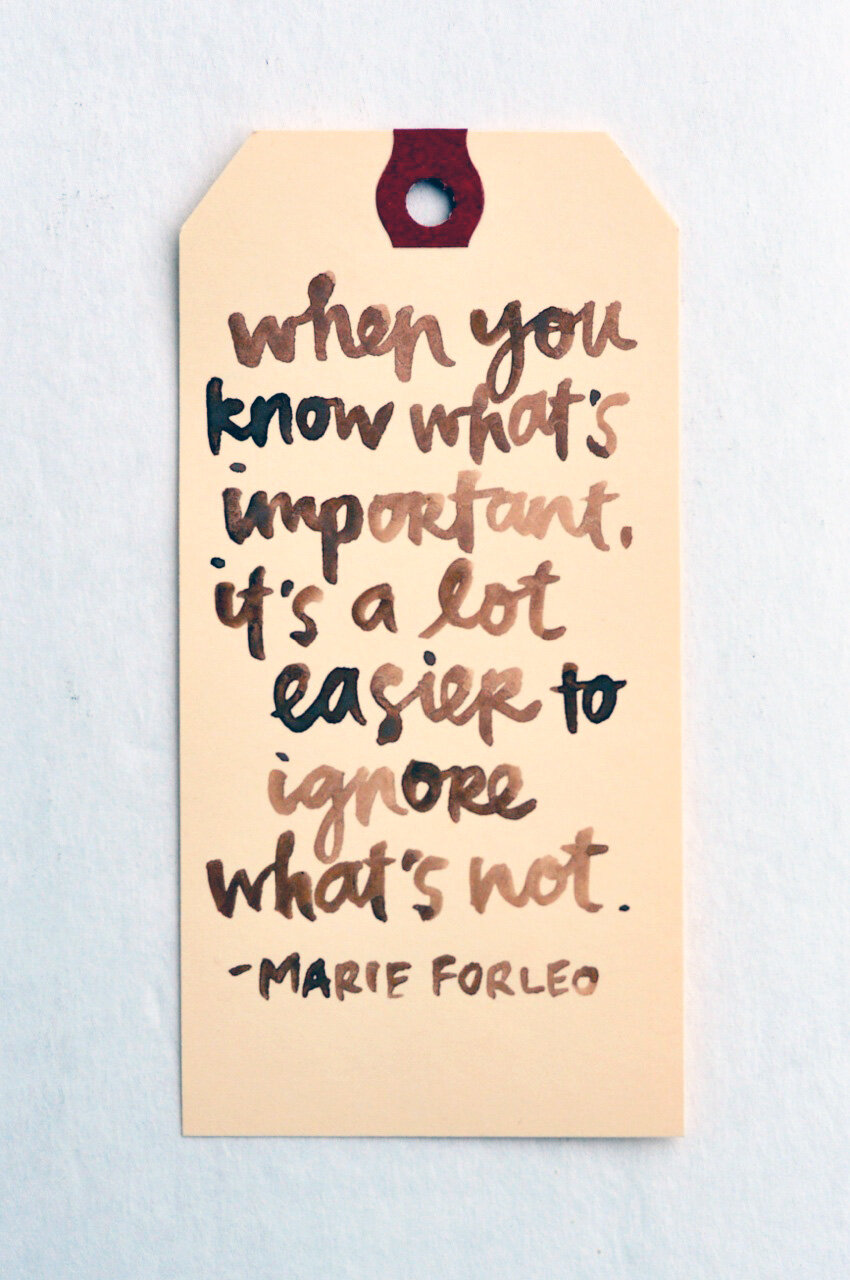 when you
know what's
important,
it's a lot
easier to
ignore
what's not.
-MARIE FORLEO